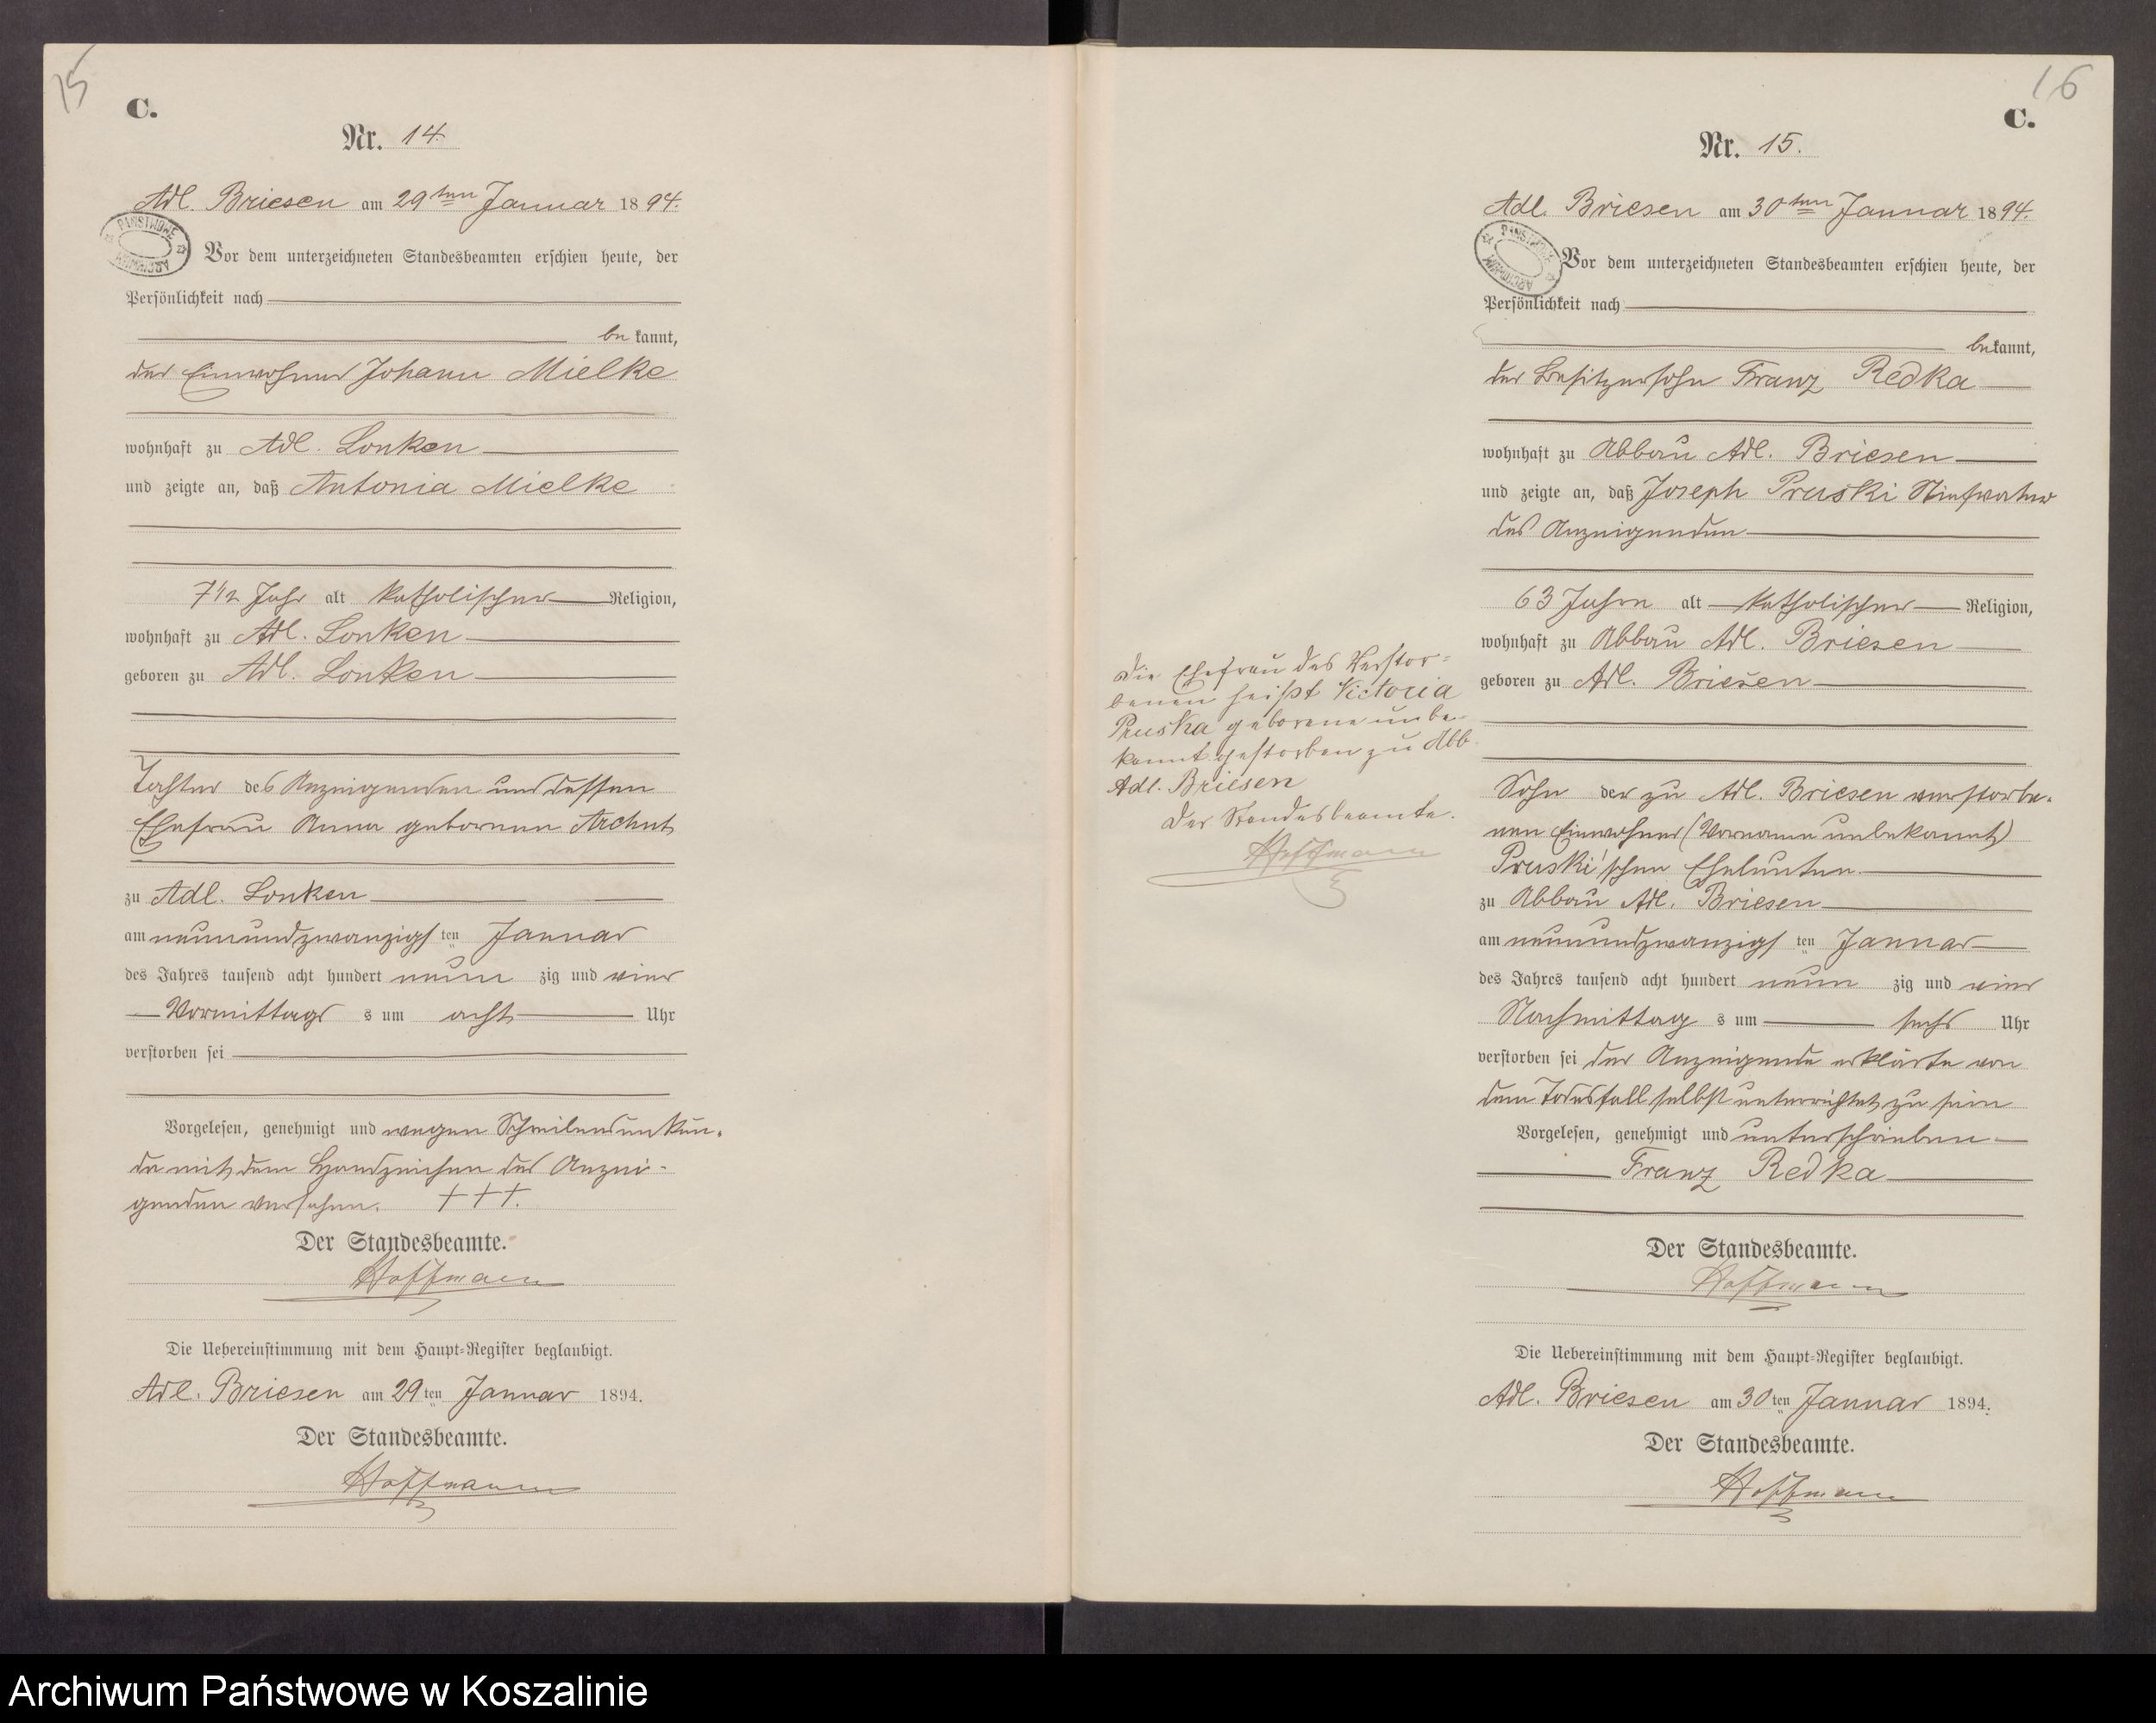 15
C.
Nr. 14.
Adl. Briesen am 29ten Januar 1894.
PAŃSTWOWE ARCHIWUM
Vor dem unterzeichneten Standesbeamten erschien heute, der
Persönlichkeit nach
bekannt,
der Einwohner Johann Mielke
wohnhaft zu Adl. Lonken
und zeigte an, daß Antonia Mielke
7 1/2 Jahr alt katholischer Religion,
wohnhaft zu Adl. Lonken
geboren zu Adl. Lonken
Tochter des Anzeigenden und dessen
Ehefrau Anna geborenen Archut
zu Adl. Lonken
am neunundzwanzigsten Januar
des Jahres tausend acht hundert neunzig und vier
Vormittags um acht Uhr
verstorben sei
Vorgelesen, genehmigt und wegen Schreibensunkun-
de mit dem Handzeichen des Anzei-
genden versehen. +++.
Der Standesbeamte.
Hoffmann
Die Uebereinstimmung mit dem Haupt-Register beglaubigt.
Adl. Briesen am 29ten Januar 1894.
Der Standesbeamte.
Hoffmann
16
C.
Nr. 15.
Adl. Briesen am 30ten Januar 1894.
PAŃSTWOWE ARCHIWUM
Vor dem unterzeichneten Standesbeamten erschien heute, der
Persönlichkeit nach
bekannt,
der Besitzersohn Franz Redka
wohnhaft zu Abbau Adl. Briesen
und zeigte an, daß Joseph Pruski Stiefvater
des Anzeigenden
63 Jahre alt katholischer Religion,
wohnhaft zu Abbau Adl. Briesen
geboren zu Adl. Briesen
Sohn der zu Adl. Briesen verstorbe-
nen Einwohner (Vorname unbekannt)
Pruski'schen Eheleuten.
zu Abbau Adl. Briesen
am neunundzwanzigsten Januar
des Jahres tausend acht hundert neunzig und vier
Nachmittags um sechs Uhr
verstorben sei der Anzeigende erklärte von
dem Todesfall selbst unterrichtet zu sein
Vorgelesen, genehmigt und unterschrieben
Franz Redka
Der Standesbeamte.
Hoffmann
Die Uebereinstimmung mit dem Haupt-Register beglaubigt.
Adl. Briesen am 30ten Januar 1894.
Der Standesbeamte.
Hoffmann
Die Ehefrau des Verstor-
benen heißt Victoria
Pruska geborene unbe-
kannt gestorben zu Abb.
Adl. Briesen
Der Standesbeamte.
Hoffmann
Archiwum Państwowe w Koszalinie